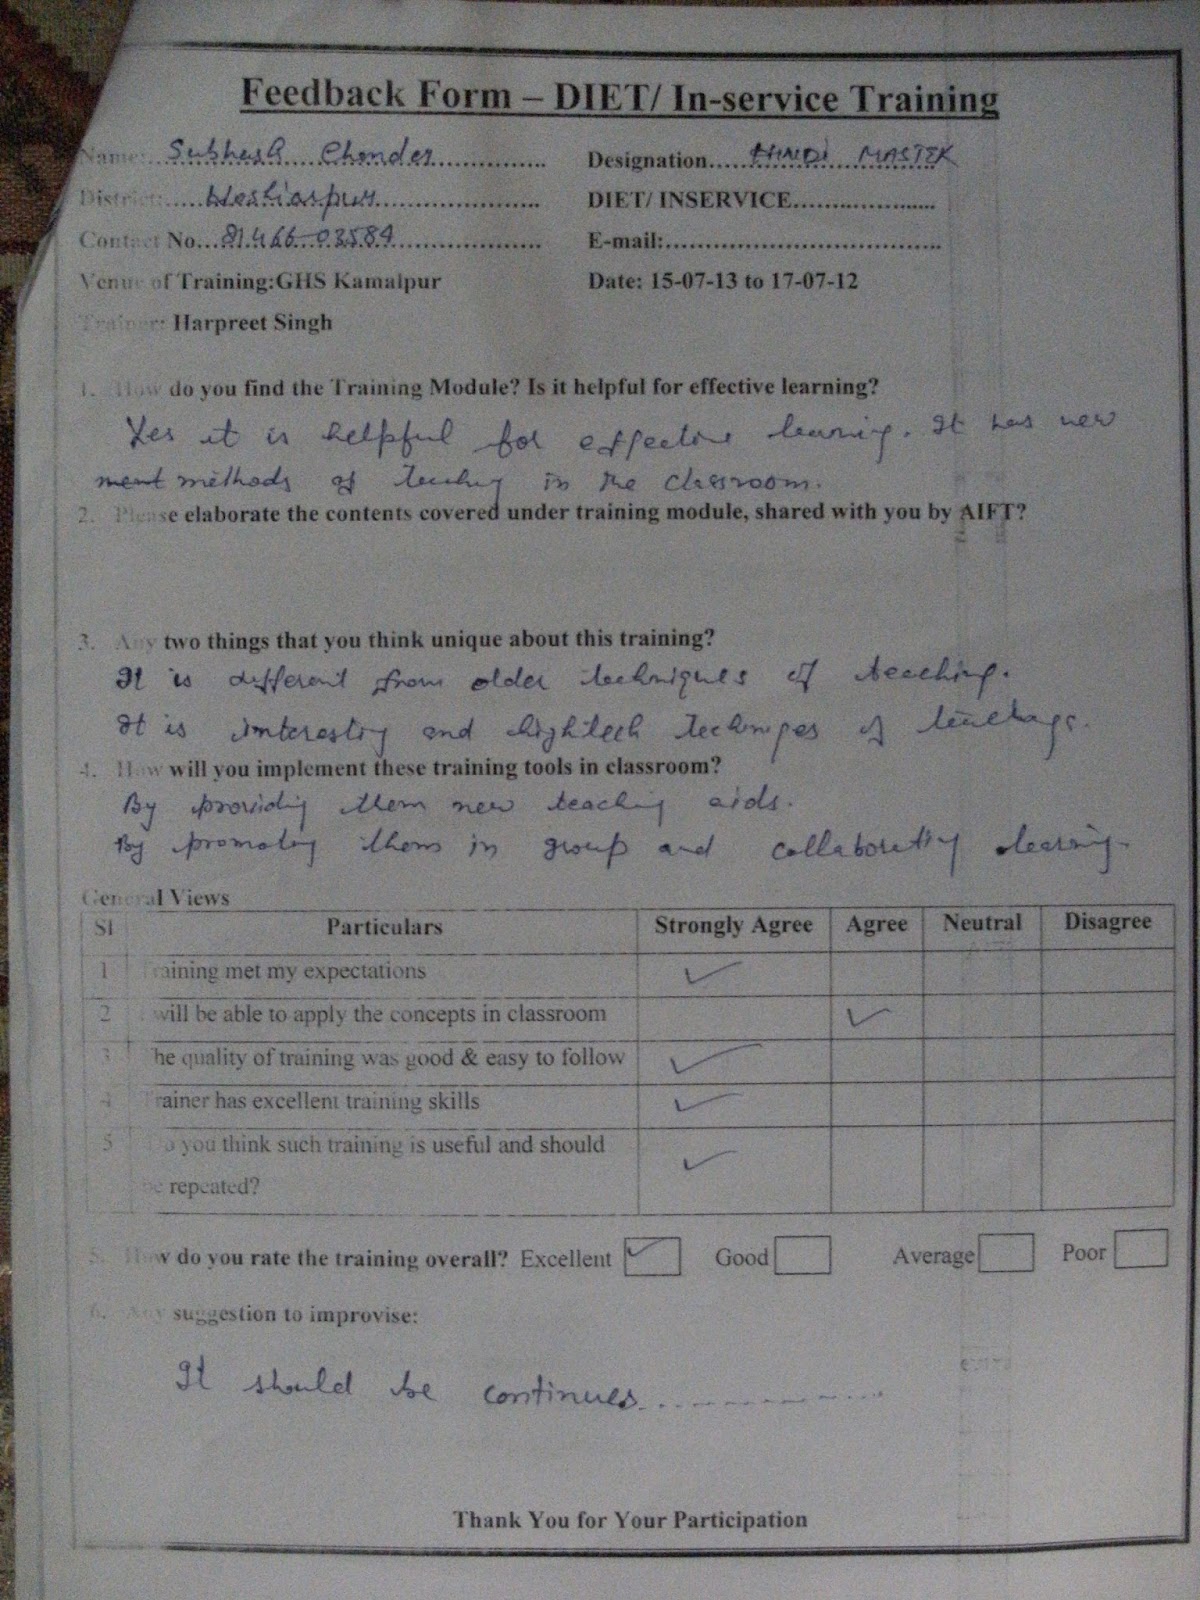 Feedback Form – DIET/ In-service Training
Name:....Subhash....Chander.............. Designation.....HINDI....MASTER
District:.....Hoshiarpur..................... DIET/ INSERVICE.....................
Contact No...81466-03584.................. E-mail:..................................
Venue of Training:GHS Kamalpur Date: 15-07-13 to 17-07-12
Trainer: Harpreet Singh
1. How do you find the Training Module? Is it helpful for effective learning?
Yes it is helpful for effective learning. It has new
methods of teaching in the classroom.
2. Please elaborate the contents covered under training module, shared with you by AIFT?
3. Any two things that you think unique about this training?
It is different from older techniques of teaching.
It is interesting and hightech techniques of
4. How will you implement these training tools in classroom?
By providing them new teaching aids.
By promoting them in group and learning.
General Views
Sl Particulars Strongly Agree Agree Neutral Disagree
1 Training met my expectations ✓
2 I will be able to apply the concepts in classroom ✓
3 The quality of training was good & easy to follow ✓
4 Trainer has excellent training skills ✓
5 Do you think such training is useful and should ✓
be repeated?
5. How do you rate the training overall? Excellent ✓ Good Average Poor
6. Any suggestion to improvise:
It should be continues............
Thank You for Your Participation